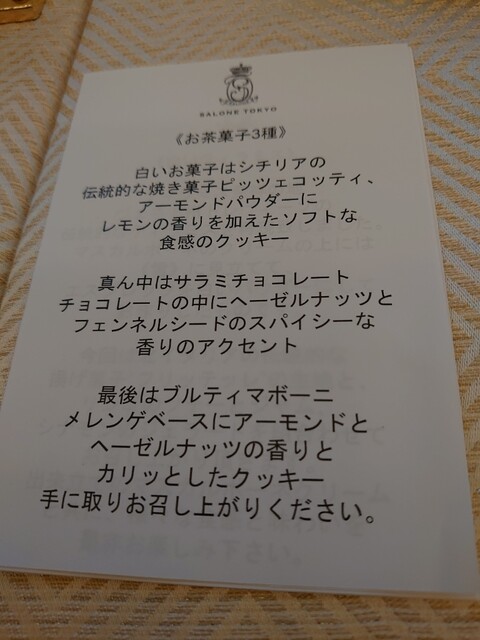 SALONE TOKYO
《お茶菓子3種》
白いお菓子はシチリアの
伝統的な焼き菓子ピッツェコッティ、
アーモンドパウダーに
レモンの香りを加えたソフトな
食感のクッキー
真ん中はサラミチョコレート
チョコレートの中にヘーゼルナッツと
フェンネルシードのスパイシーな
香りのアクセント
最後はブルティマボーニ
メレンゲベースにアーモンドと
ヘーゼルナッツの香りと
カリッとしたクッキー
手に取りお召し上がりください。